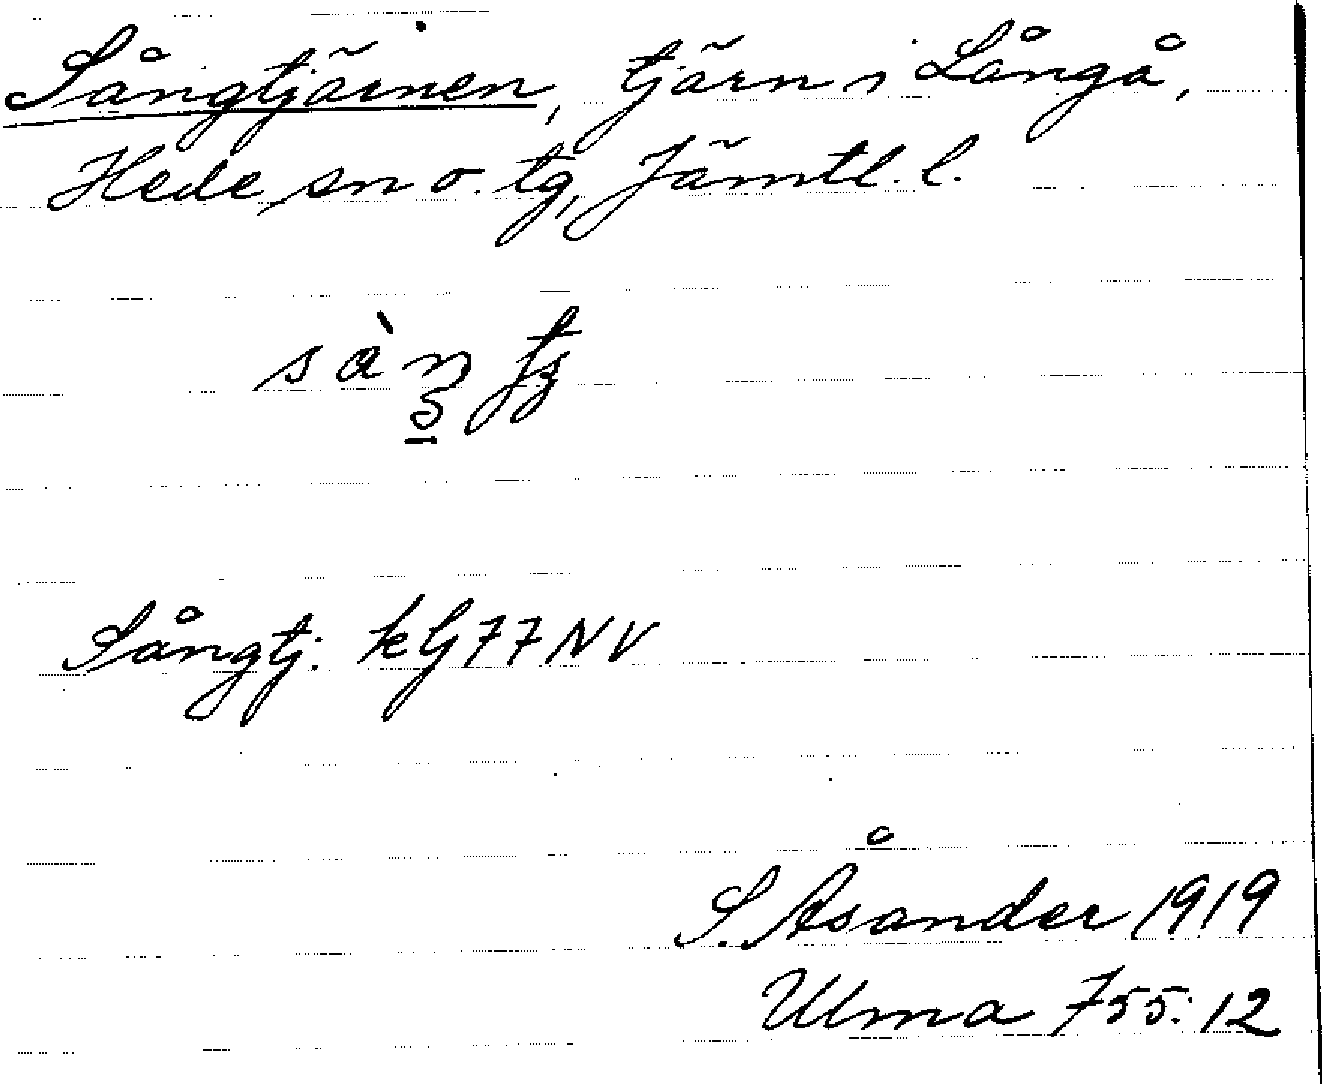 Sångtjärnen, tjärn i Långå,
Hede sn o. tg, Jämtl. l.
Sångtj. kG77NV
S. Åsander 1919
Ulma 755:12